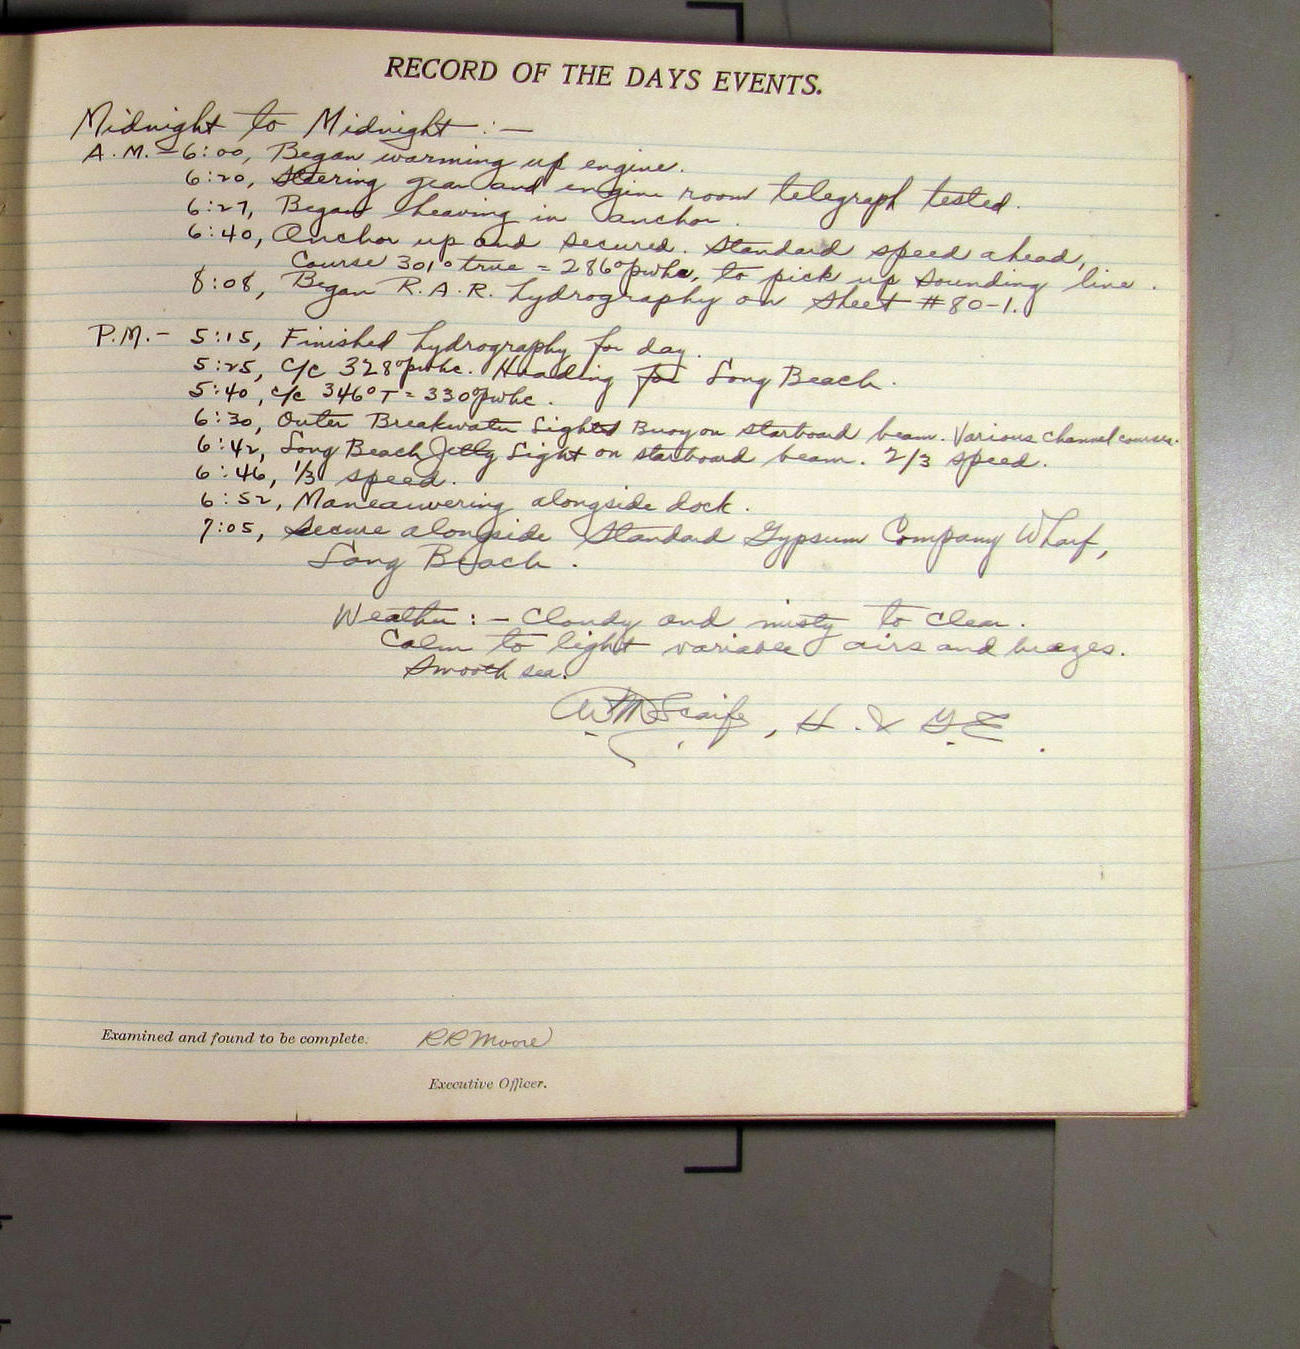 RECORD OF THE DAYS EVENTS.
Midnight to Midnight :—
A.M.— 6:00, Began warming up engine.
6:20, Steering gear and engine room telegraph tested.
6:27, Began heaving in anchor.
6:40, Anchor up and secured. Standard speed ahead,
Course 301° true = 286° pwhc, to pick up sounding line.
8:08, Began R.A.R. hydrography on Sheet #80-1.
P.M.— 5:15, Finished hydrography for day.
5:25, c/c 328° pwhc. Heading for Long Beach.
5:40, c/c 346° T = 330° pwhc.
6:30, Outer Breakwater Lighted Buoy on starboard beam. Various channel courses.
6:42, Long Beach Jetty Light on starboard beam. 2/3 speed.
6:46, 1/3 speed.
6:52, Maneauvering alongside dock.
7:05, Secure alongside Standard Gypsum Company Wharf,
Long Beach.
Weather:— Cloudy and misty to clear.
Calm to light variable airs and breezes.
Smooth sea.
W M Scaife, H. & G.E.
Examined and found to be complete. R R Moore
Executive Officer.